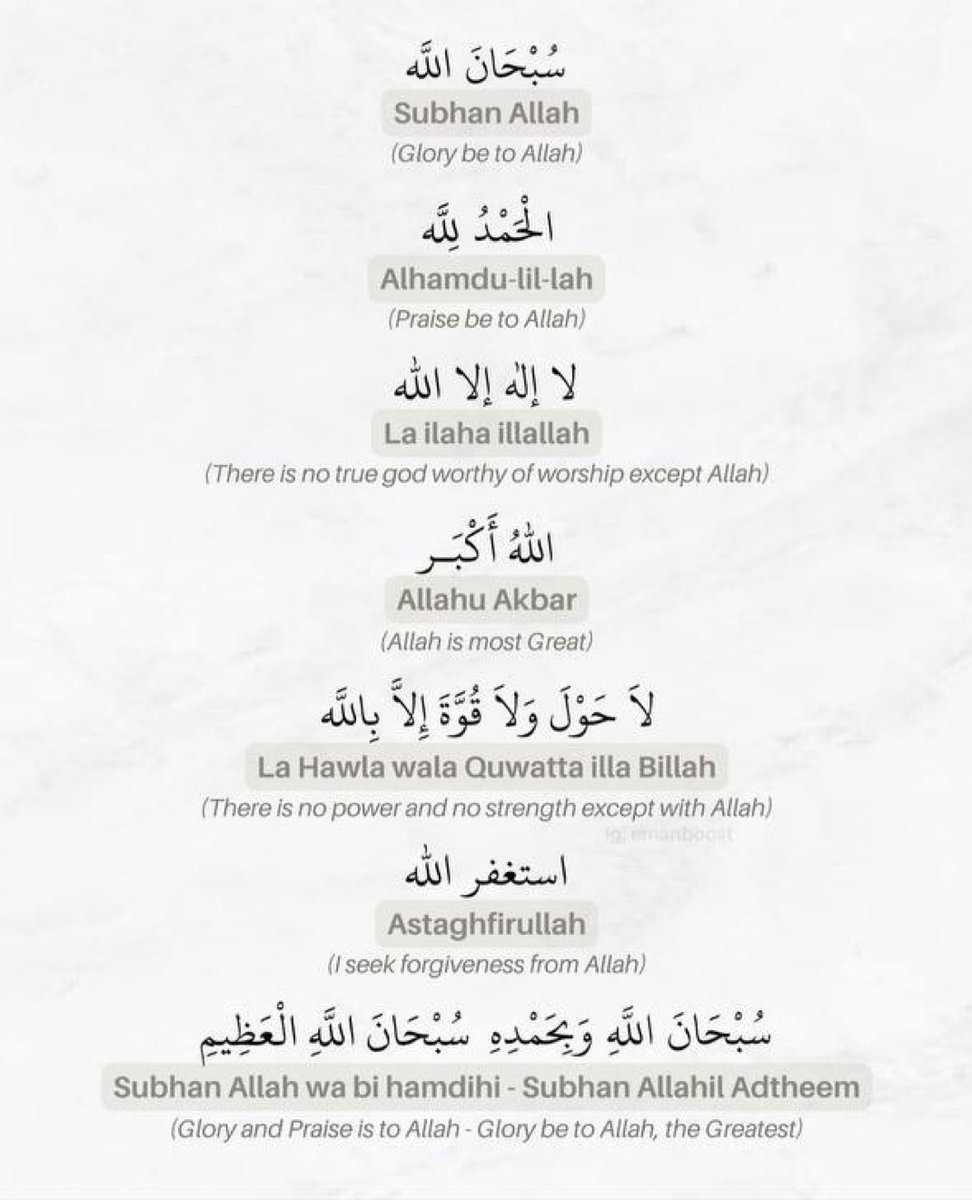 سُبْحَانَ اللَّه
Subhan Allah
(Glory be to Allah)
الْحَمْدُ لِلَّه
Alhamdu-lil-lah
(Praise be to Allah)
لا إله إلا الله
La ilaha illallah
(There is no true god worthy of worship except Allah)
اللهُ أَكْبَـر
Allahu Akbar
(Allah is most Great)
لاَ حَوْلَ وَلاَ قُوَّةَ إِلاَّ بِاللَّه
La Hawla wala Quwatta illa Billah
(There is no power and no strength except with Allah)
ig: emanboost
استغفر الله
Astaghfirullah
(I seek forgiveness from Allah)
سُبْحَانَ اللَّهِ وَبِحَمْدِهِ سُبْحَانَ اللَّهِ الْعَظِيمِ
Subhan Allah wa bi hamdihi - Subhan Allahil Adtheem
(Glory and Praise is to Allah - Glory be to Allah, the Greatest)